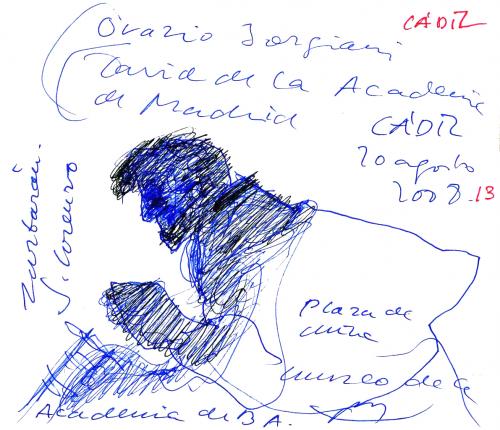 CÁDIZ
Orazio Borgiani
David de la Academia
de Madrid
CÁDIZ
20 agosto
2008.13
Zurbarán.
S. Lorenzo
Plaza de
mina
museo de
Academia de BA.